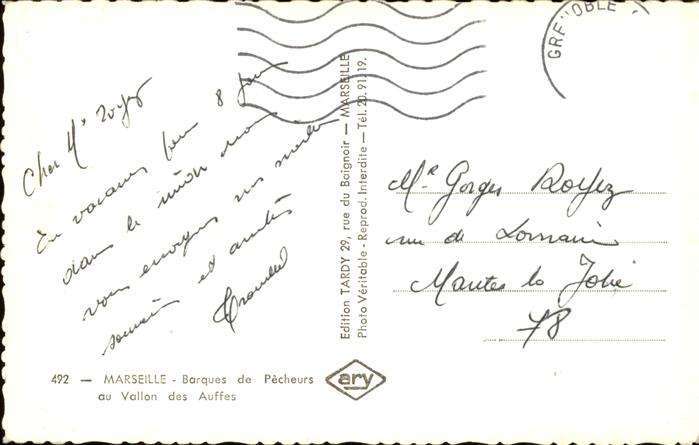 GRENOBLE
Cher Mr Royez
En vacances pour 8 jours
dans le midi nous
vous envoyons nos meilleurs
souvenirs et amitiés
Mr Georges Royez
rue de Lorraine
Mantes la Jolie
78
Edition TARDY 29, rue du Baignoir — MARSEILLE
Photo Véritable - Reprod. Interdite — Tél. 20.91.19.
492 — MARSEILLE - Barques de Pêcheurs
au Vallon des Auffes
ary